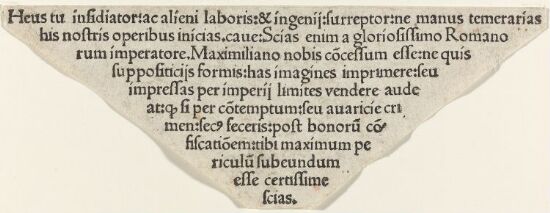 Heus tu insidiator:ac alieni laboris:& ingenij:surreptor:ne manus temerarias
his nostris operibus inicias.caue:Scias enim a gloriosissimo Romano
rum imperatore.Maximiliano nobis cõcessum esse:ne quis
suppositicijs formis:has imagines imprimere:seu
impressas per imperij limites vendere aude
at:qꝫ si per cõtemptum:seu auaricie cri
men:secꝰ feceris:post bonorũ cõ
fiscatiõem:tibi maximum pe
riculũ subeundum
esse certissime
scias.